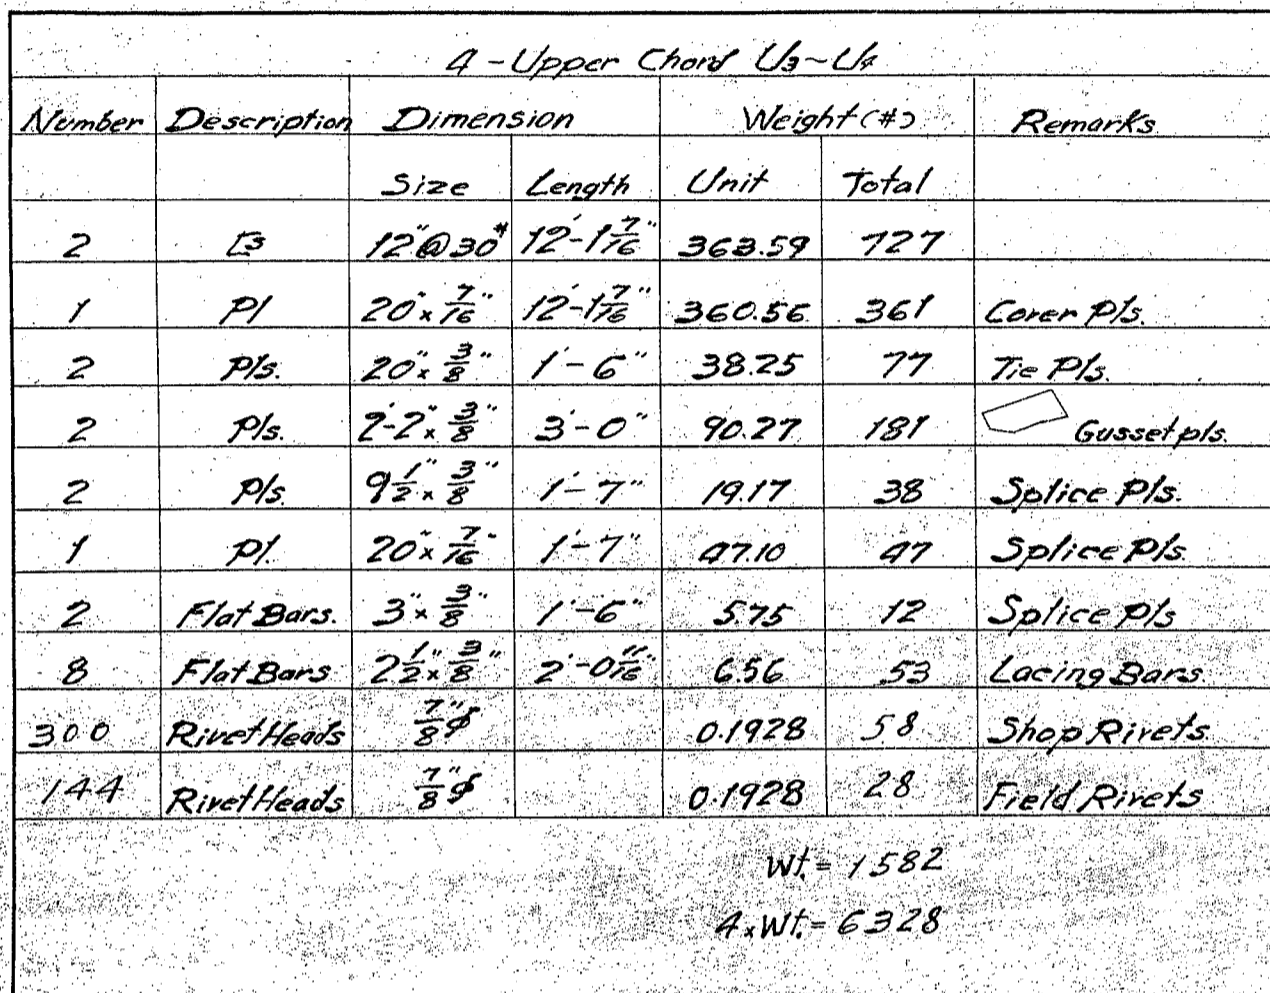 4 - Upper Chord U3~U4
Number Description Dimension Weight (#) Remarks
Size Length Unit Total
2 [s 12"@30# 12'-1 7/16" 363.59 727
1 Pl 20"x 7/16" 12'-1 7/16" 360.56 361 Cover Pls.
2 Pls. 20"x 3/8" 1'-6" 38.25 77 Tie Pls.
2 Pls. 2'-2"x 3/8" 3'-0" 90.27 181 Gusset pls.
2 Pls. 9 1/2"x 3/8" 1'-7" 19.17 38 Splice Pls.
1 Pl. 20"x 7/16" 1'-7" 47.10 47 Splice Pls
2 Flat Bars. 3"x 3/8" 1'-6" 5.75 12 Splice Pls
8 Flat Bars 2 1/2"x 3/8" 2'-0 11/16" 6.56 53 Lacing Bars
300 Rivet Heads 7/8"φ 0.1928 58 Shop Rivets
144 Rivet Heads 7/8"φ 0.1928 28 Field Rivets
Wt. = 1582
4 x Wt. = 6328